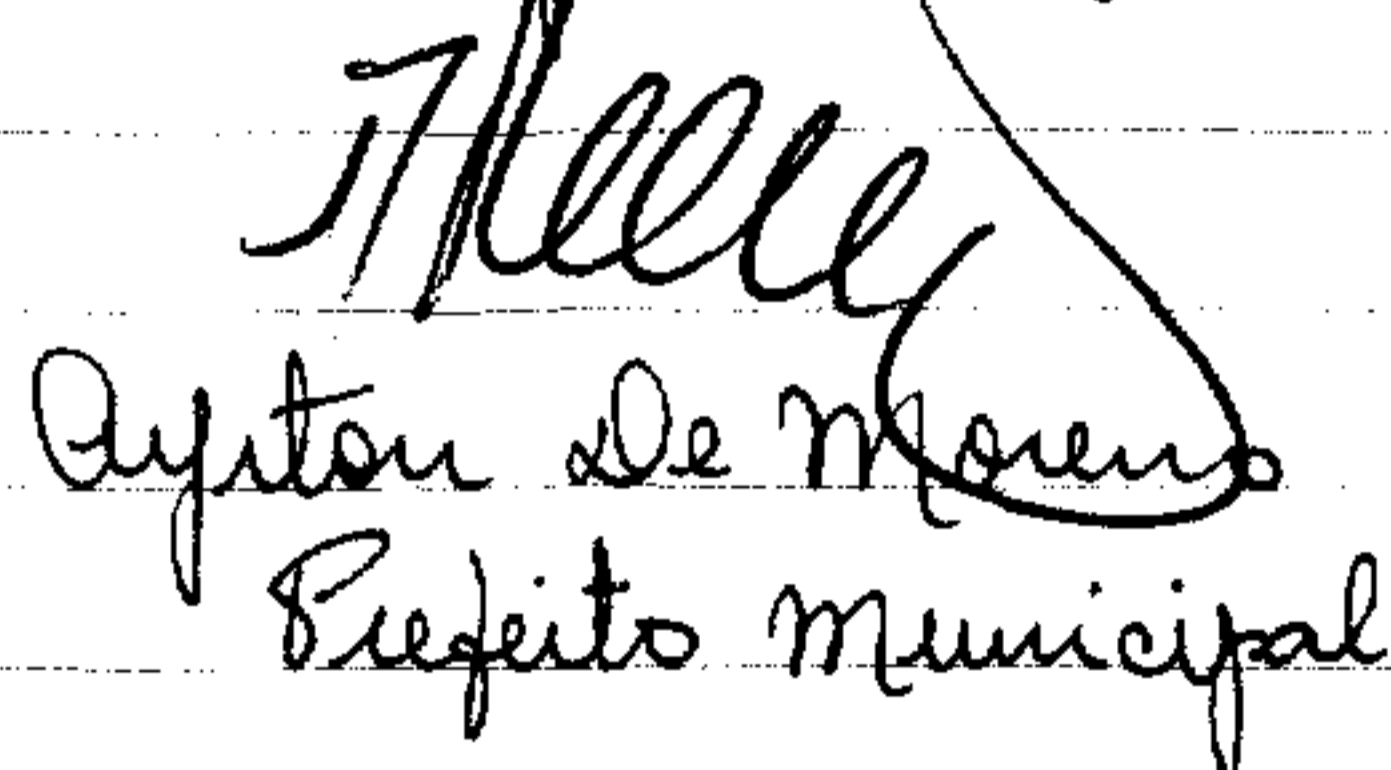 Ayrton De Moreno
Prefeito Municipal